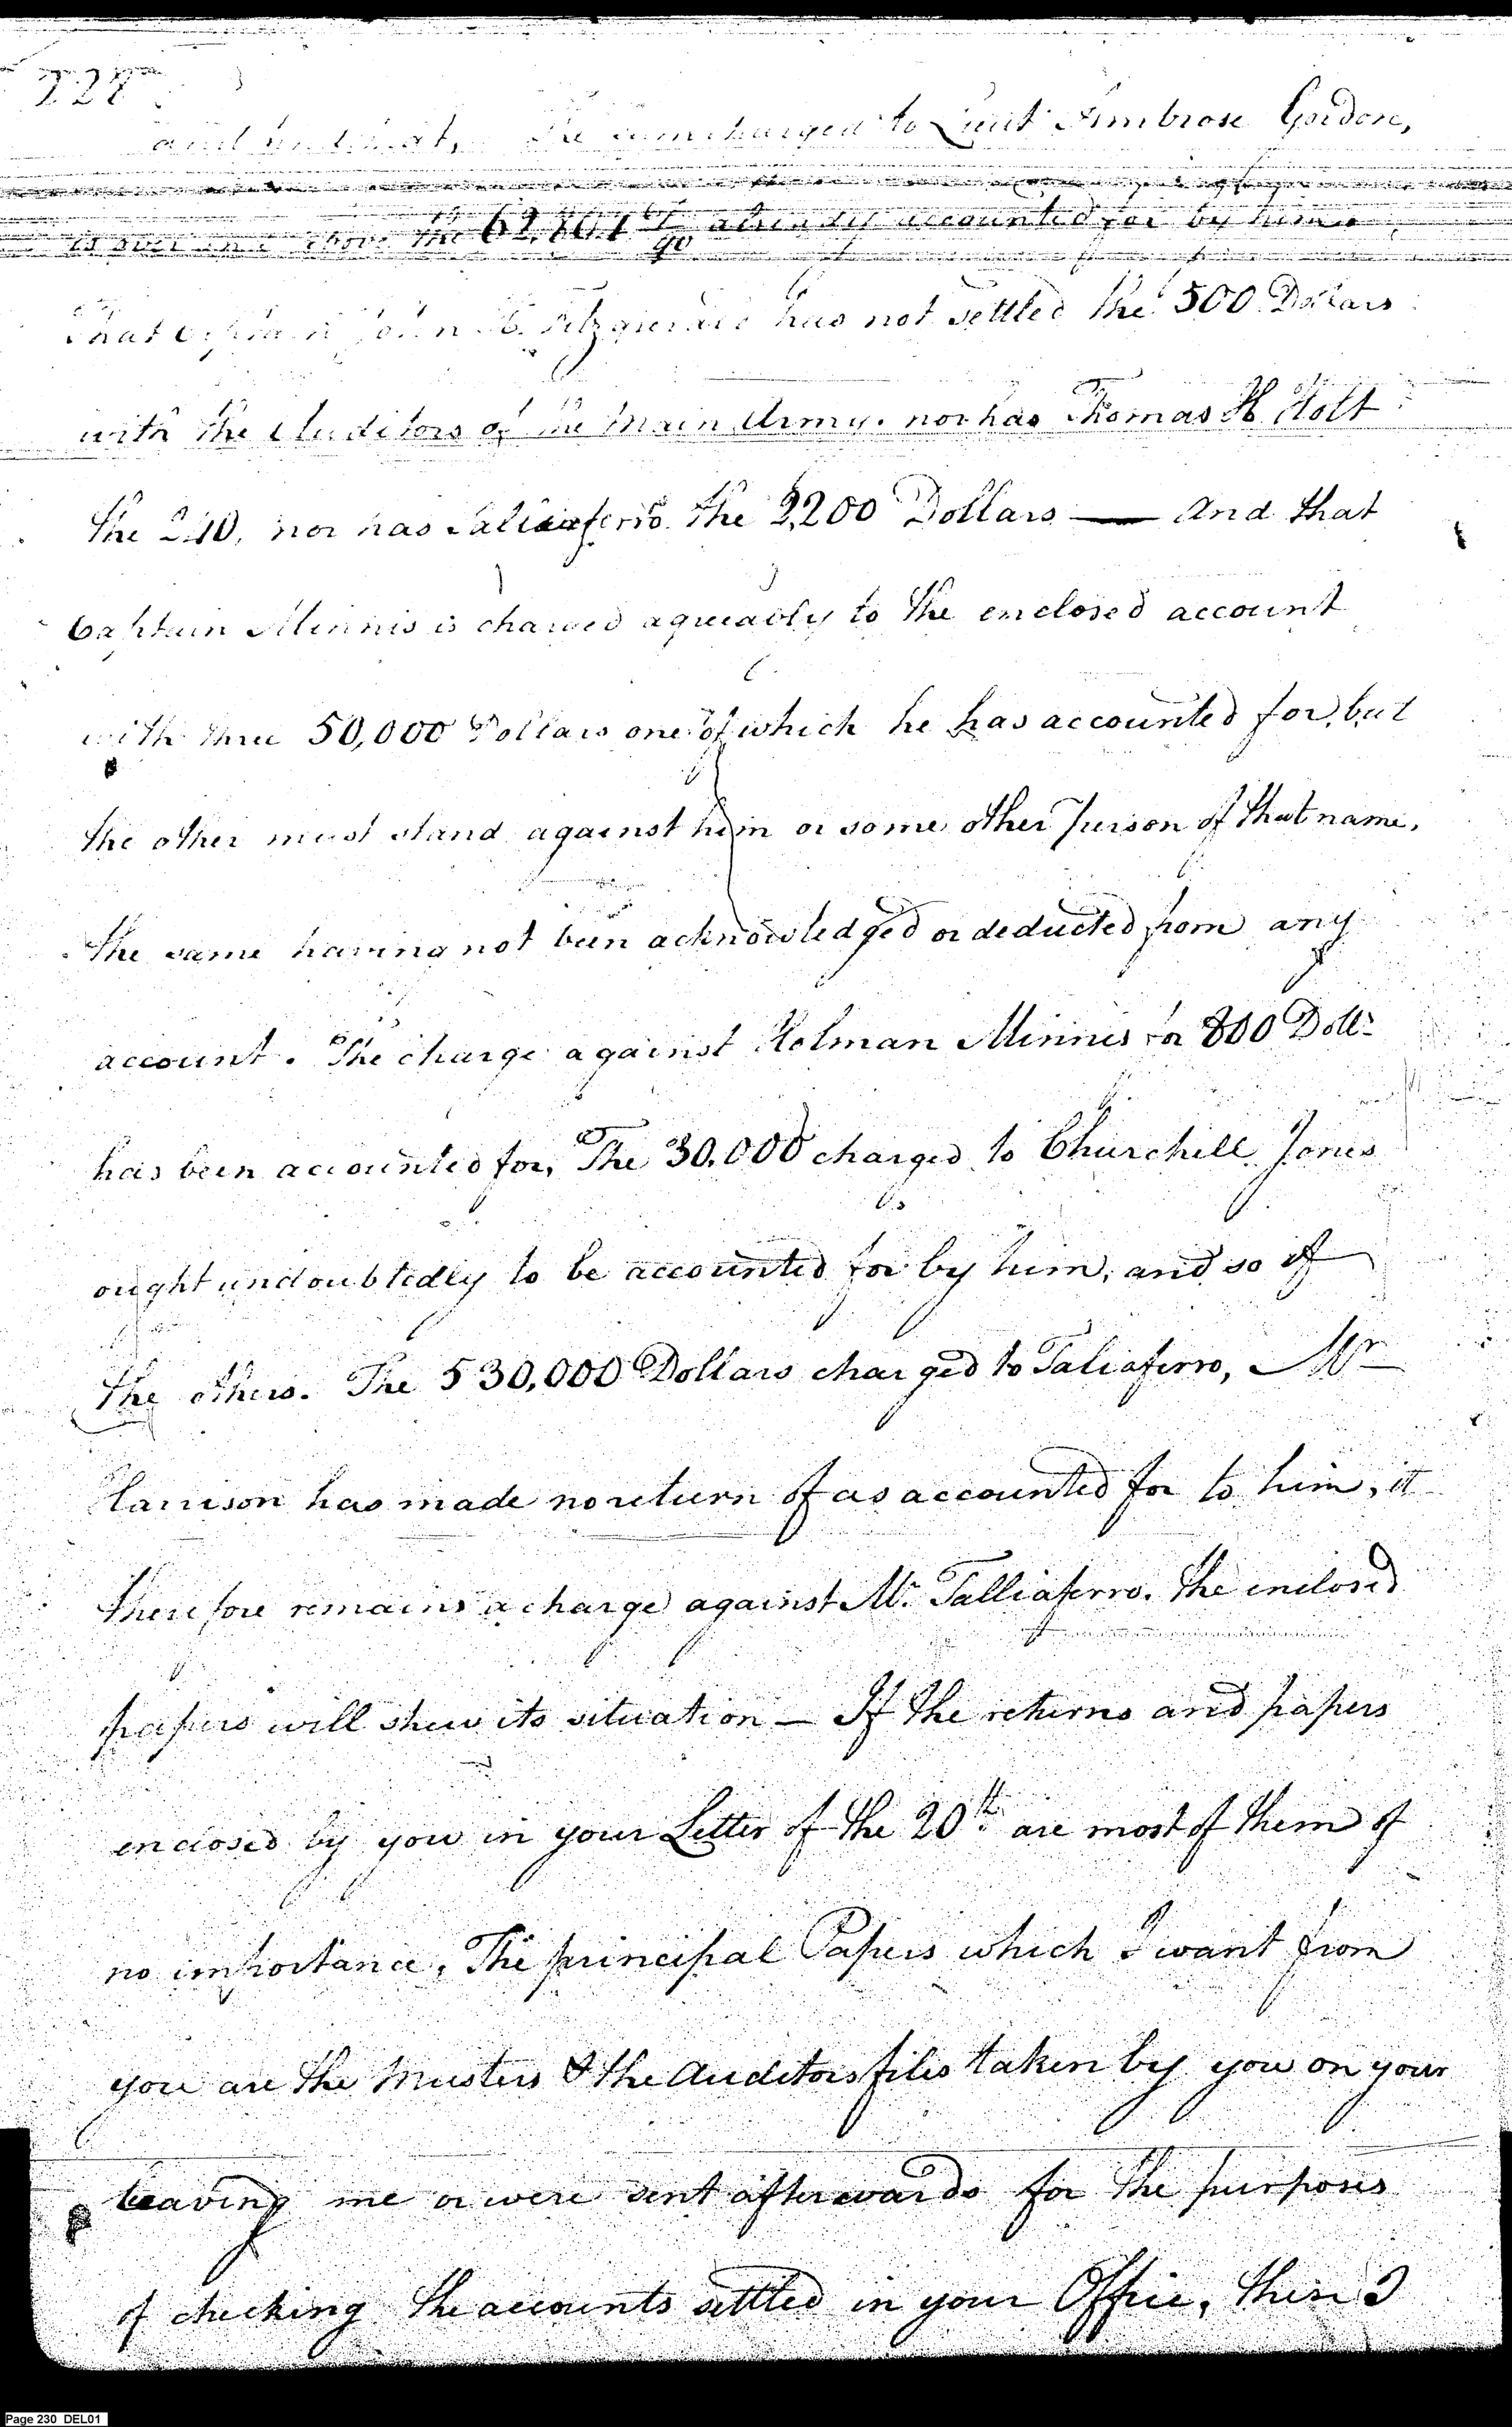 228
The sum charged to Lieut Ambrose Gordon,
is over and above the 62,801 67/90 already accounted for by him
That Captain John H. Fitzgerald has not settled the 500 Dollars
with the Auditors of the Main Army. nor has Thomas H. Holt
the 240, nor has Taliaferro the 2,200 Dollars — And that
Captain Minnis is charged agreeably to the enclosed account
with three 50,000 Dollars one of which he has accounted for, but
the other must stand against him or some other Person of that name,
The same having not been acknowledged or deducted from any
account. The charge against Holman Minnis for 800 Dolls
has been accounted for, The 30,000 charged to Churchill Jones
ought undoubtedly to be accounted for by him, and so of
the others. The 530,000 Dollars charged to Taliaferro, Mr
Harrison has made no return of as accounted for to him, it
therefore remains a charge against Mr. Talliaferro. The enclosed
papers will shew its situation — If the returns and papers
enclosed by you in your Letter of the 20th are most of them of
no importance, The principal Papers which I want from
you are the Musters & the Auditors files taken by you on your
leaving me or were sent afterwards for the purposes
of checking the accounts settled in your Office, these I
Page 230 DEL01